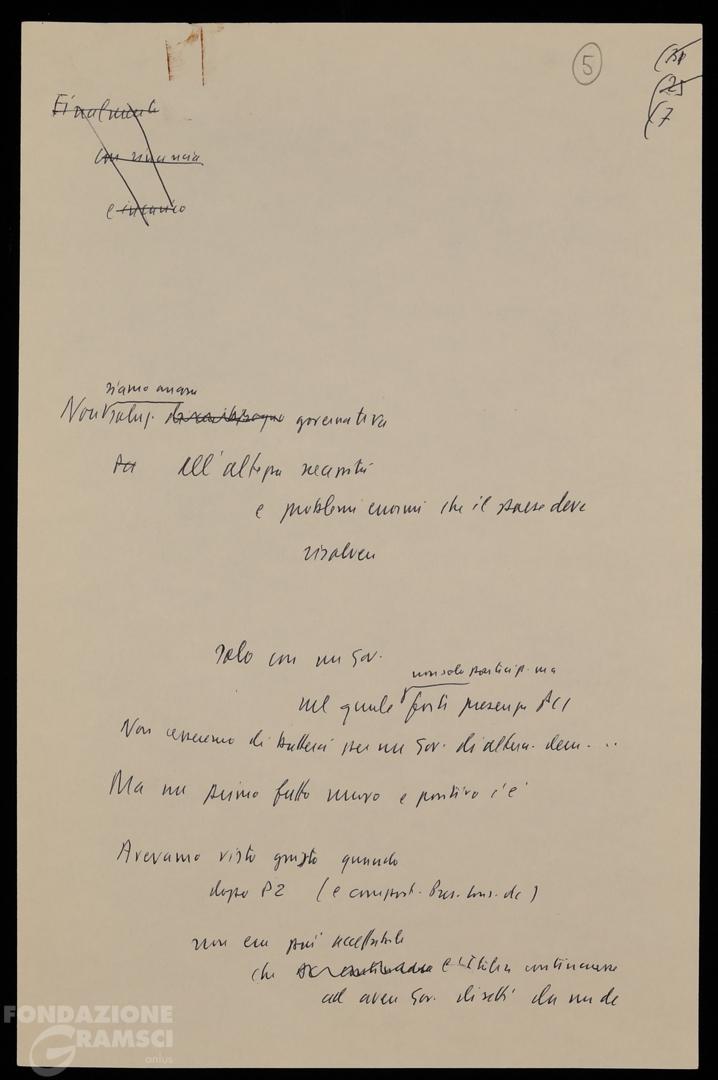 5
(31
(25
(7
Finalmente
con rinuncia
e
siamo ancora
Non soluz. governativa
All'altezza necessità
e problemi enormi che il paese deve
risolvere
solo con un Gov.
non solo particip. ma
nel quale forti presenza PCI
Non cesseremo di batterci per un Gov. di altern. dem. . .
Ma un primo fatto nuovo e positivo c'è
Avevamo visto giusto quando
dopo P2 (e comport. Pres. Cons. dc)
non era più accettabile
che l'Italia continuasse
ad avere Gov. diretti da un dc
FONDAZIONE
GRAMSCI
onlus